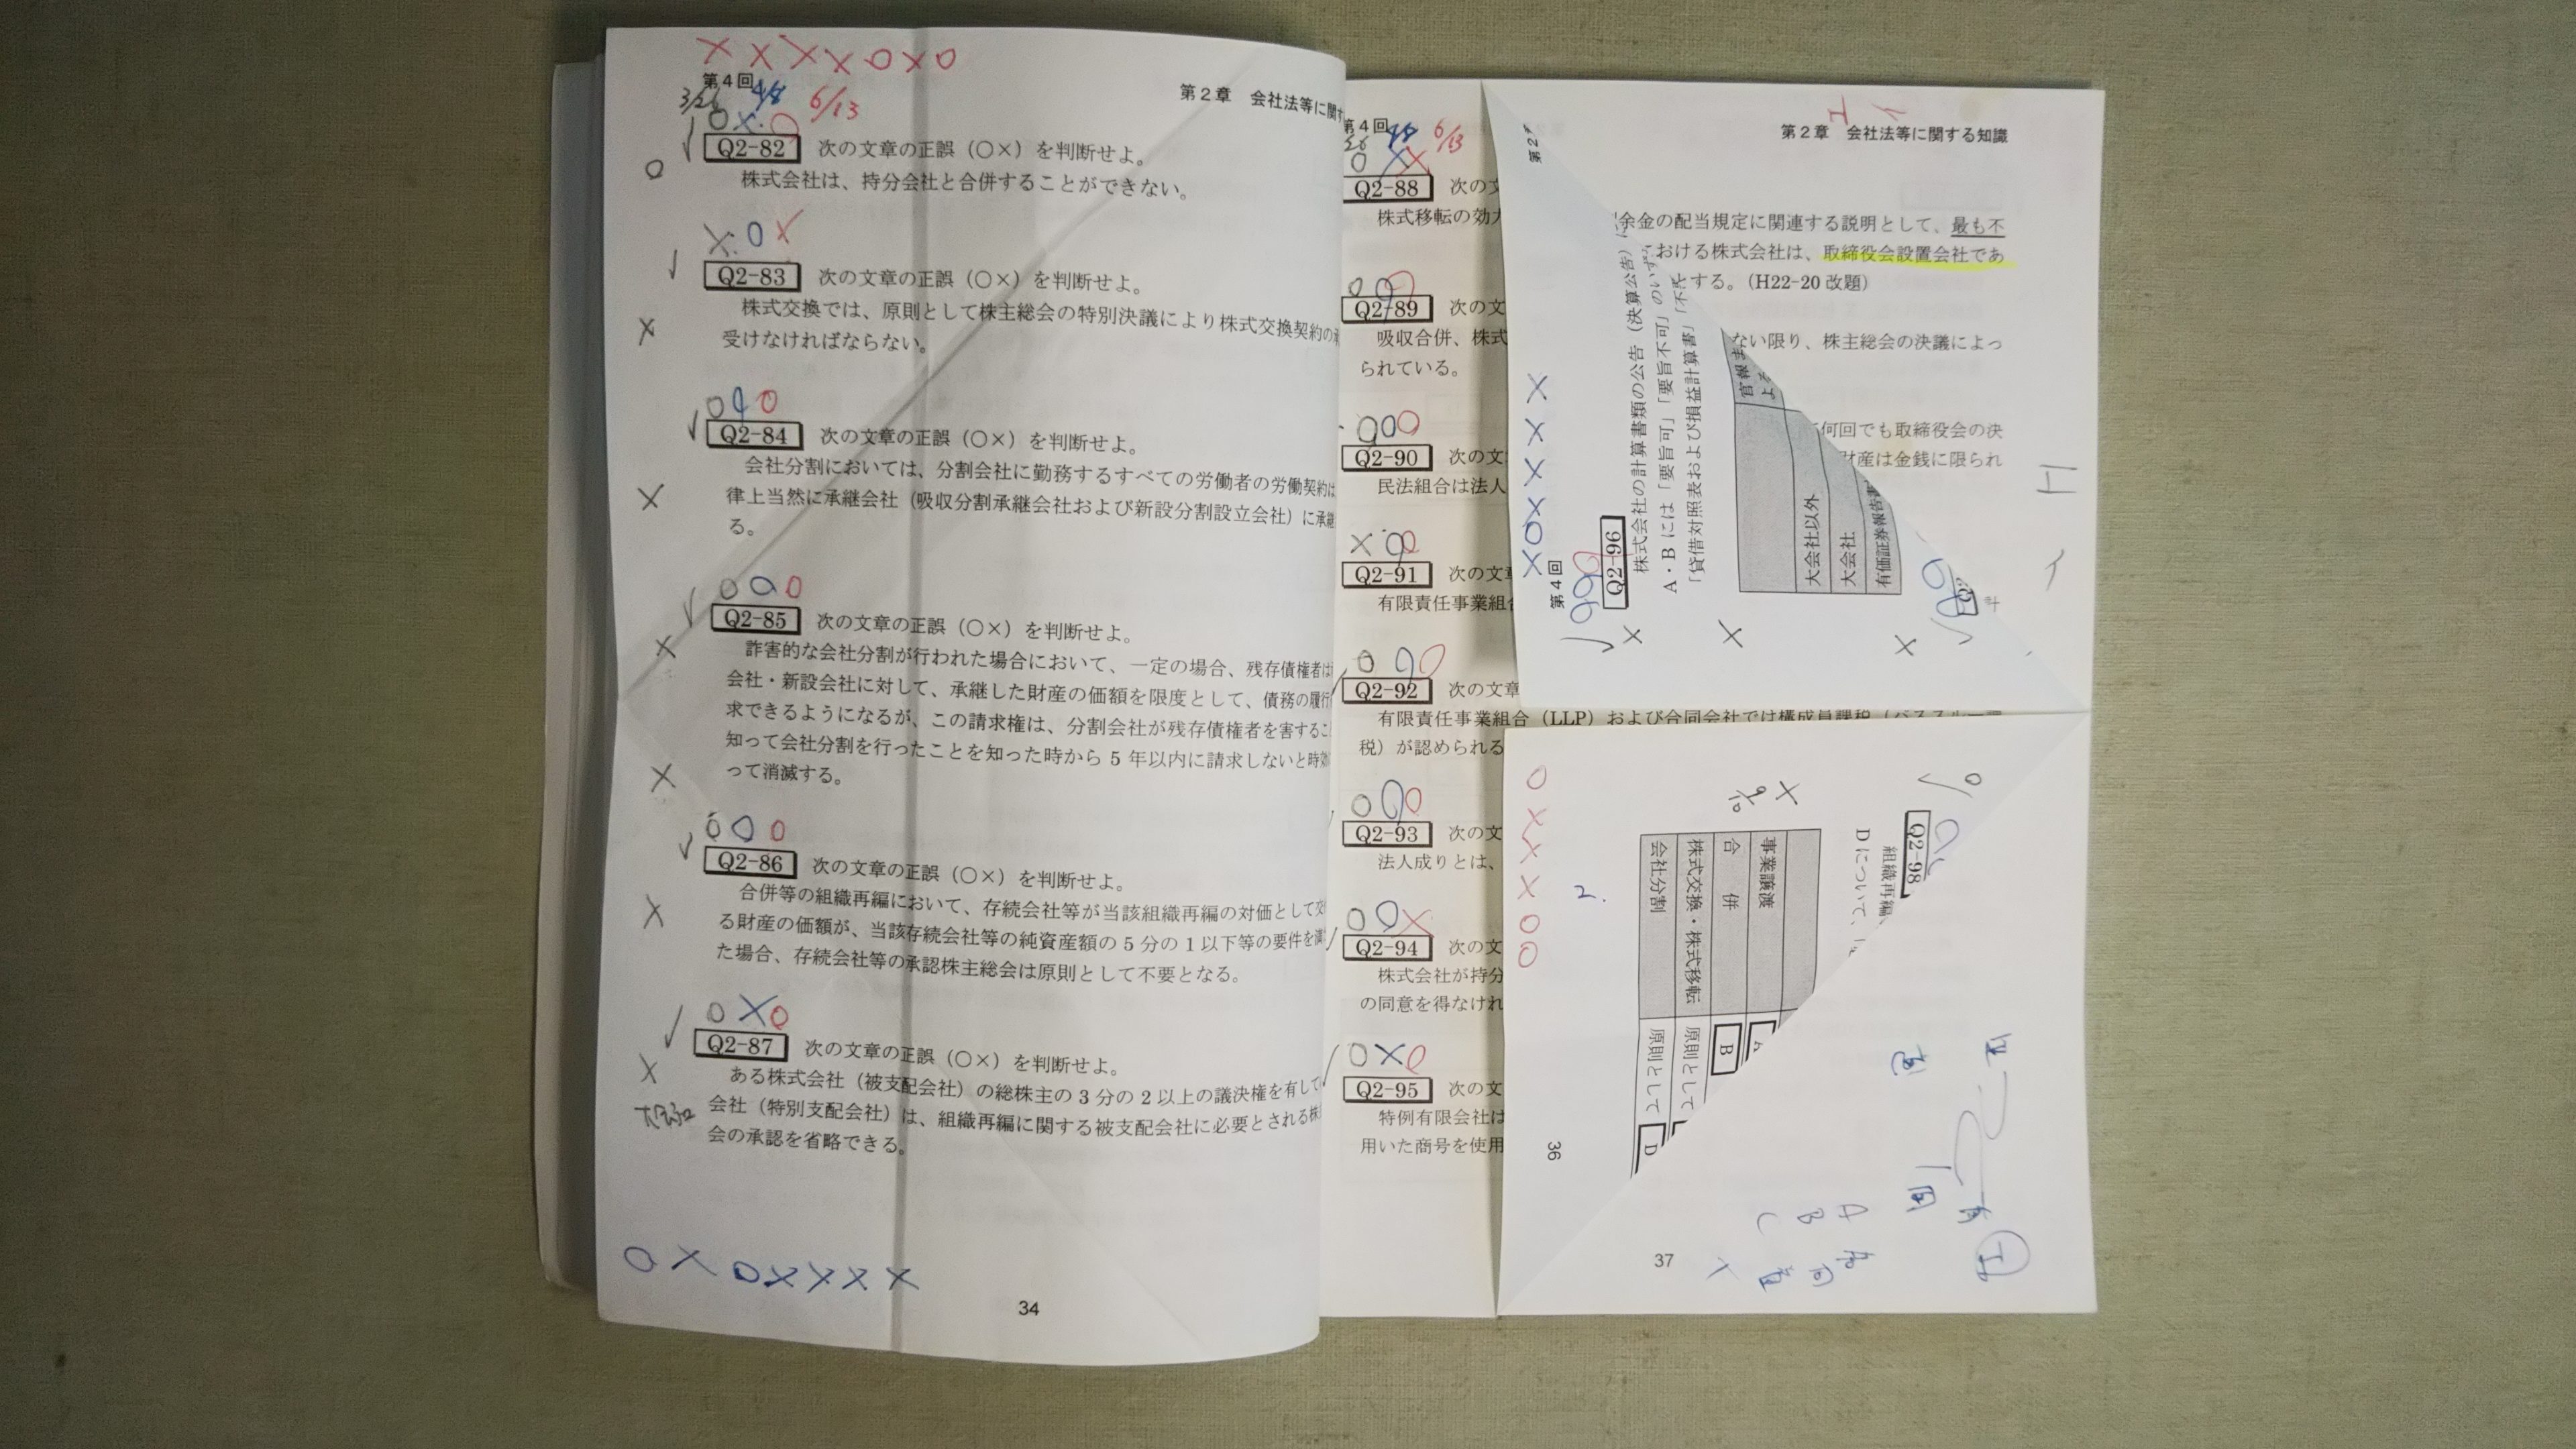 ××××○×○
第4回
第2章 会社法等に関す
3/26 4/8 6/13
○×○
Q2-82 次の文章の正誤（○×）を判断せよ。
○
株式会社は、持分会社と合併することができない。
×○×
Q2-83 次の文章の正誤（○×）を判断せよ。
株式交換では、原則として株主総会の特別決議により株式交換契約の
×
受けなければならない。
○○○
Q2-84 次の文章の正誤（○×）を判断せよ。
会社分割においては、分割会社に勤務するすべての労働者の労働契約は
×
律上当然に承継会社（吸収分割承継会社および新設分割設立会社）に承継
る。
○○○
Q2-85 次の文章の正誤（○×）を判断せよ。
×
詐害的な会社分割が行われた場合において、一定の場合、残存債権者は
会社・新設会社に対して、承継した財産の価額を限度として、債務の履行
求できるようになるが、この請求権は、分割会社が残存債権者を害するこ
知って会社分割を行ったことを知った時から 5 年以内に請求しないと時効
×
って消滅する。
○○○
Q2-86 次の文章の正誤（○×）を判断せよ。
合併等の組織再編において、存続会社等が当該組織再編の対価として交
×
る財産の価額が、当該存続会社等の純資産額の 5 分の 1 以下等の要件を満
た場合、存続会社等の承認株主総会は原則として不要となる。
○×○
Q2-87 次の文章の正誤（○×）を判断せよ。
×
ある株式会社（被支配会社）の総株主の 3 分の 2 以上の議決権を有して
会社（特別支配会社）は、組織再編に関する被支配会社に必要とされる株
会の承認を省略できる。
○×○××××
34
第4回
4/8 6/13
○××
Q2-88 次の文
株式移転の効
○○○
Q2-89 次の文
吸収合併、株式
られている。
○○○
Q2-90 次の文
民法組合は法人
×○○
Q2-91 次の文
有限責任事業組合
○○○
Q2-92 次の文章
有限責任事業組合（LLP）および合同会社では構成員課税（パススルー課
税）が認められる
○○○
Q2-93 次の文
法人成りとは、
○○×
Q2-94 次の文
株式会社が持分
の同意を得なけれ
○×○
Q2-95 次の文
特例有限会社は
用いた商号を使用
第2章 会社法等に関する知識
余金の配当規定に関連する説明として、最も不
おける株式会社は、取締役会設置会社であ
する。（H22-20 改題）
ない限り、株主総会の決議によっ
何回でも取締役会の決
財産は金銭に限られ
第4回
Q2-96
株式会社の計算書類の公告（決算公告）
A・B には「要旨可」「要旨不可」のいず
「貸借対照表および損益計算書」「不
官報ま
よる
大会社以外
大会社
有価証券報告書
××××○×
×
×
×
36
Q2-98
組織再編、
D について、
事業譲渡
A
合 併
B
株式交換・株式移転
原則として
会社分割
原則として D
○×××○○
2.
A
B
C
37